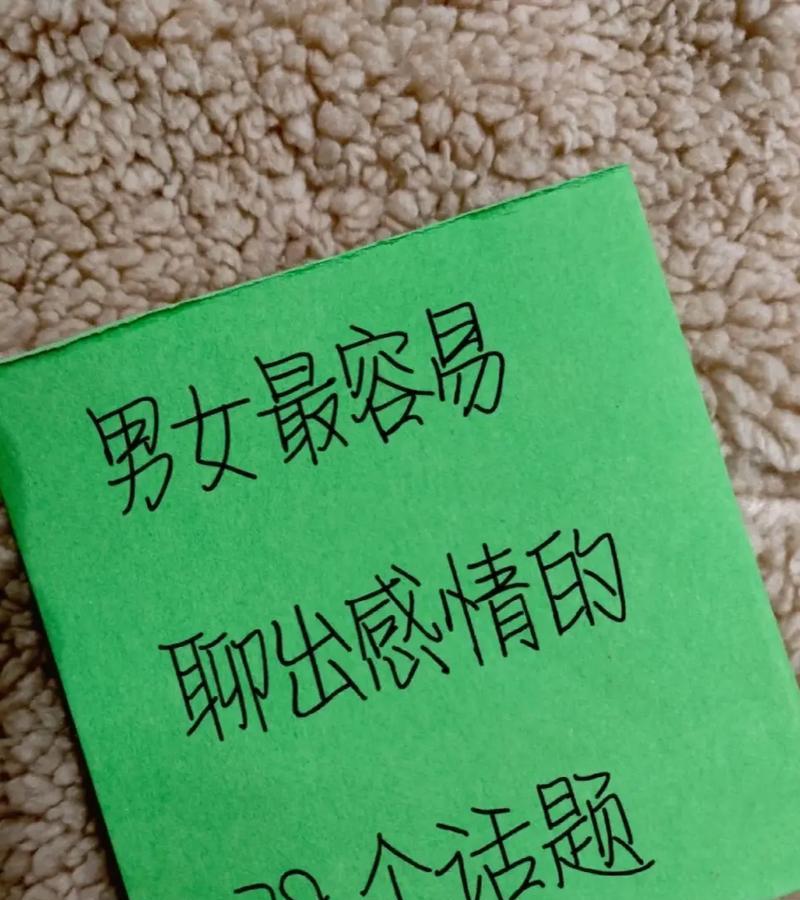 男女最容易
聊出感情的
个话题